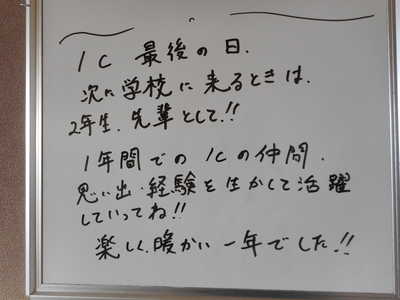 1C 最後の日.
次に学校に来るときは.
2年生.先輩として!!
1年間での1Cの仲間.
思い出・経験を生かして活躍
していってね!!
楽しく.暖かい一年でした!!